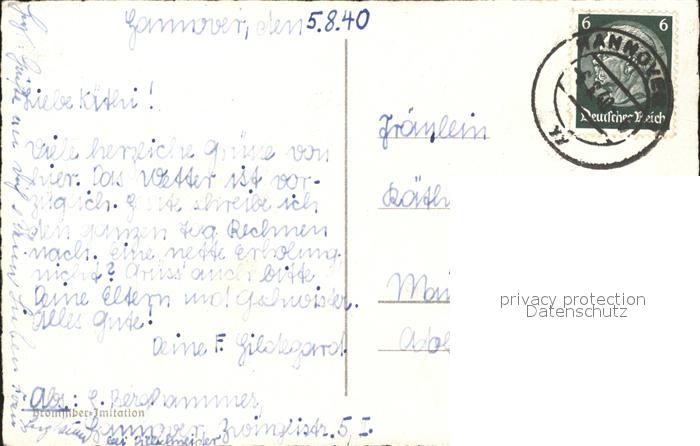 Hannover, den 5.8.40
Liebe Käthi!
Viele herzliche Grüße von
hier. Das Wetter ist vor-
züglich. Heute schreibe ich
den ganzen Tag Rechnen
nach. Eine nette Erholung
nicht? Grüss' auch bitte
Deine Eltern und Geschwister.
Alles Gute!
Deine F. Hildegard
Abs.:
Bromsilber-Imitation
Hannover, Zwinglistr. 5 I.
bei
Fräulein
Käth
Mai
6 6
Deutsches Reich
HANNOVER
privacy protection
Datenschutz